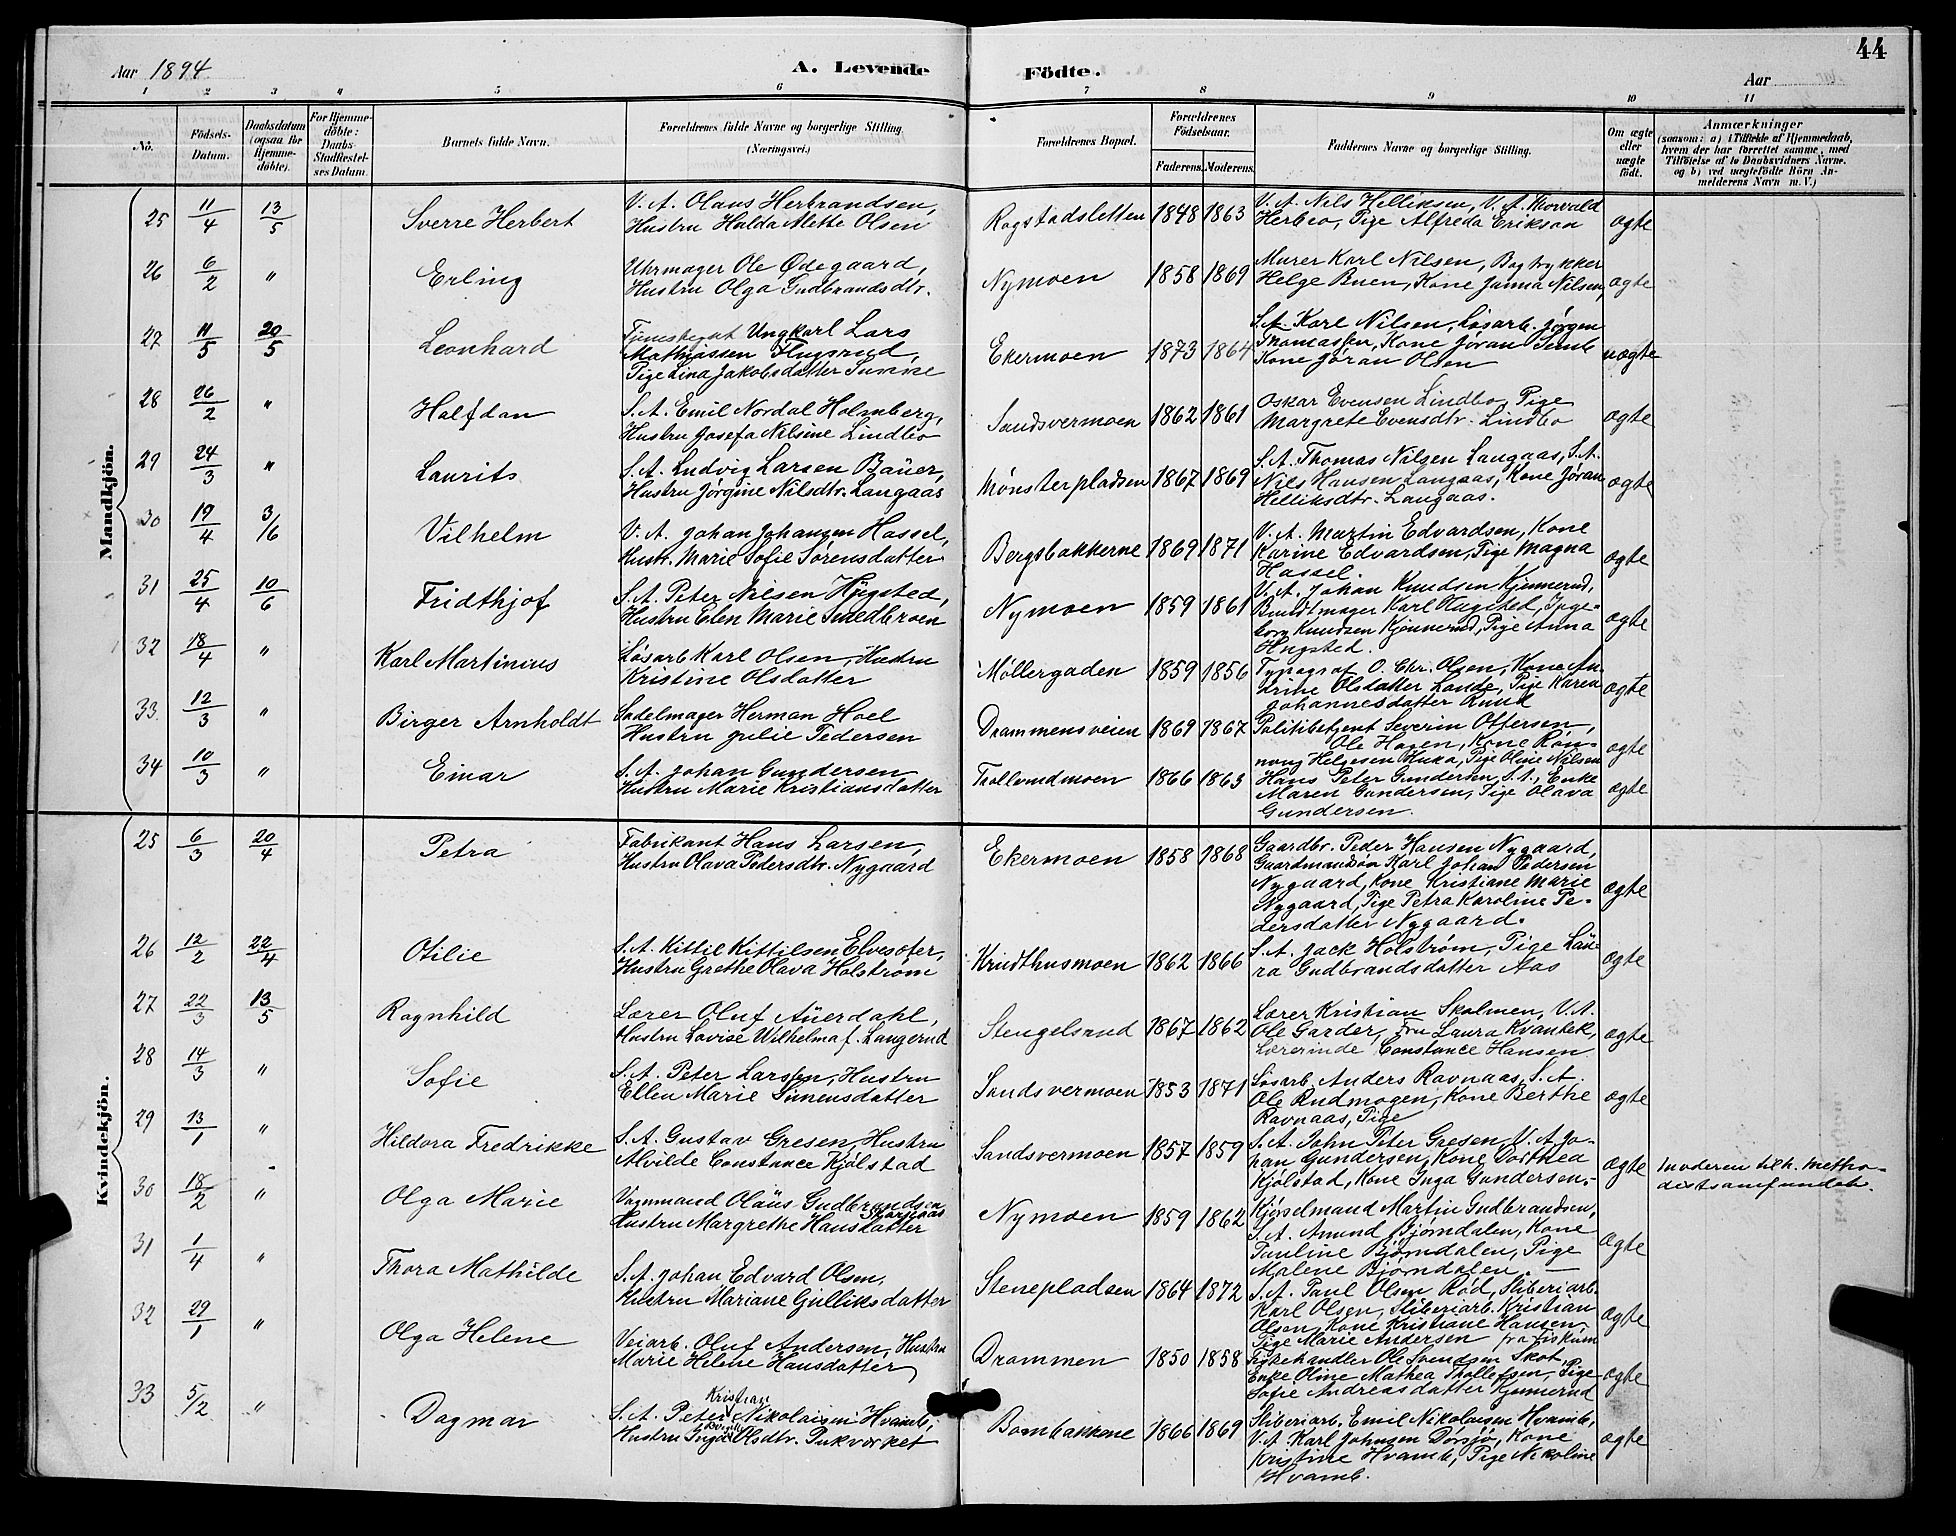 44
Aar 1894.
A. Levende Födte.
Aar
1 2 3 4 5 6 7 8 9 10 11
No.
Födsels-Datum.
Daabsdatum (ogsaa for Hjemme-döbte).
For Hjemme-döbte: Daabs-Stadfæstel-ses Datum.
Barnets fulde Navn.
Forældrenes fulde Navne og borgerlige Stilling. (Næringsvei.)
Forældrenes Bopæl.
Forældrenes Födselsaar.
Faderens. Moderens.
Faddernes Navne og borgerlige Stilling.
Om ægte eller uægte födt.
Anmærkninger
(saasom: a) i Tilfælde af Hjemmedaab, hvem der har forrettet samme, med Tilföielse af to Daabsvidners Navne. og b) ved uægtefödte Börn An-melderens Navn m. V.)
Mandkjön.
25 11/4 13/5 Sverre Herbert
V. A. Olaus Herbrandsen,
Hustru Hulda Mette Olsen
Rogstadsletten 1848 1863
V. A. Nils Helliksen, V. A. Thorvald
Herbro, Pige Alfreda Erikson ægte
26 6/2 " Erling
Uhrmager Ole Ødegaard,
Hustru Olga Gudbrandsdtr.
Nymoen 1858 1869
Murer Karl Nilsen, Bogtrykker
Helge Buen, Kone Janna Nilsen, ægte
27 11/5 20/5 Leonhard
Ungkarl Lars
Mathiassen
Pige Lina Jakobsdatter
Ekermoen 1873 1864
S. A. Karl Nilsen, Løsarb. Jørgen
Thomassen, Kone Jøran
Kone Jøran Olsen uægte
28 26/2 " Halfdan
S. A. Emil Nordal Holmberg,
Hustru Josefa Nilsine Lindbo
Sandsvermoen 1862 1861
Oskar Evensen Lindbo, Pige
Margrete Evensdtr. Lindbo ægte
29 24/3 " Laurits
S. A. Ludvig Larsen Bauer,
Hustru Jørgine Nilsdtr. Langaas
Mønsterpladsen 1867 1869
S. A. Thomas Nilsen Langaas, S. A.
Nils Hansen Langaas, Kone Jøran
Helliksdtr. Langaas. ægte
30 19/4 3/6 Vilhelm
V. A. Johan Johansen Hassel,
Hustr. Marie Sofie Sørensdatter
Bergsbakkerne 1869 1871
V. A. Martin Edvardsen, Kone
Karine Edvardsen, Pige Magna
Hassel. ægte
31 25/4 10/6 Fridthjof
S. A. Peter Nilsen Hugsted,
Hustru Elen Marie Smedbroen
Nymoen 1859 1861
V. A. Johan Knudsen Kjennerud,
Bundtmager Karl Hugsted, Inge-
borg Knudsen Kjennerud, Pige Anna
Hugsted. ægte
32 18/4 " Karl Martinius
Løsarb Karl Olsen, Hustru
Kristine Olsdatter
Møllergaden 1859 1856
Typograf O. Chr. Olsen, Kone An-
drine Olsdatter Lande, Pige Karen
Johannesdatter Ruud ægte
33. 12/3 " Birger Arnholdt
Sadelmager Herman Hoel
Hustru Julie Pedersen
Drammensveien 1869 1867
Politibetjent Severin Ottersen,
Ole Hagen, Kone Røn-
naug Helgesen Kuka, Pige Oline Nilsen ægte
34 10/3 " Einar
S. A. Johan Gundersen
Hustru Marie Kristiansdatter
Tollovmdmoen 1866 1863
Hans Peter Gundersen, S. A., Enke
Maren Gundersen, Pige Olava
Gundersen. ægte
Kvindekjön.
25 6/3 20/4 Petra
Fabrikant Hans Larsen,
Hustru Olava Pedersdtr. Nygaard
Ekermoen 1858 1868
Gaardbr. Peder Hansen Nygaard,
Gaardmandsøn Karl Johan Pedersen
Nygaard, Kone Kristiane Marie
Nygaard, Pige Petra Karoline Pe-
dersdatter Nygaard. ægte
26 12/2 22/4 Otilie
S. A. Kittil Kittilsen Elvesøter,
Hustru Grethe Olava Holstrøm
Krudthusmoen 1862 1866
S. A. Jack Holstrøm, Pige Lau-
ra Gudbrandsdatter Aas ægte
27 22/3 13/5 Ragnhild
Lærer Oluf Auerdahl,
Hustru Lovise Wilhelma f. Langerud
Stengelsrud 1867 1862
Lærer Kristian Skolmen, V. A.
Ole Garder, Fru Laura
Lærerinde Constance Hansen ægte
28 14/3 " Sofie
S. A. Peter Larsen, Hustru
Ellen Marie Simensdatter
Sandsvermoen 1853 1871
Løsarb. Anders Ravnaas, S. A.
Ole Rudmogen, Kone Berthe
Ravnaas, Pige ægte
29 13/1 " Hildora Fredrikke
S. A. Gustav Gresen, Hustru
Alvilde Constance Kjølstad
Sandsvermoen 1857 1859
S. A. John Peter Gresen, V. A. Jo-
han Gundersen, Kone Dorthea
Kjølstad, Kone Inga Gundersen. ægte
Moderen tilh. Metho-
distsamfundet.
30 18/2 " Olga Marie
Vognmand Olaus Gudbrandsen
Skarnaas
Hustru Margrethe Hansdatter
Nymoen 1859 1862
Kjørselmand Martin Gudbrandsen,
S. A. Amund Bjørndalen, Kone
Pauline Bjørndalen, Pige
Malene Bjørndalen. ægte
31 1/4 " Thora Mathilde
S. A. Johan Edvard Olsen,
Hustru Mariane Gulliksdatter
Stenepladsen 1864 1872
S. A. Paul Olsen Rød, Sliberiarb.
Karl Olsen, Sliberiarb. Kristian
Olsen, Kone Kristiane Hansen,
Pige Marie Andersen fra Fiskum ægte
32 29/1 " Olga Helene
Veiarb. Oluf Andersen, Hustru
Marie Helene Hansdatter
Drammen 1850 1858
Fiskehandler Ole Svendsen Skot,
Enke Oline Mathea Thollefsen, Pige
Sofie Andreasdatter Kjennerud ægte
33 5/2 " Dagmar
Kristian
S. A. Peter Nikolaisen Hvamb,
Hustru Inga Olsdtr. Pukverket
Bombakkene 1866 1869
Sliberiarb. Emil Nikolaisen Hvamb,
V. A. Karl Johnsen Dørsjø, Kone
Kristine Hvamb, Pige Nikoline
Hvamb. ægte